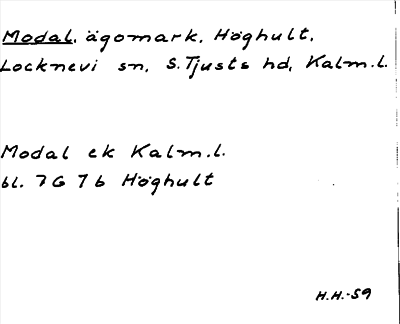 Modal, ägomark, Höghult,
Locknevi sn, S. Tjusts hd, Kalm.l.
Modal ek Kalm.l.
bl. 7G 7b Höghult
H.H.-59